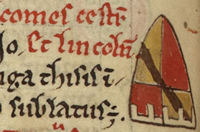 comes cestr̄
Jo. Et lincoln̄
uga thisis ı̄
o sublatus;